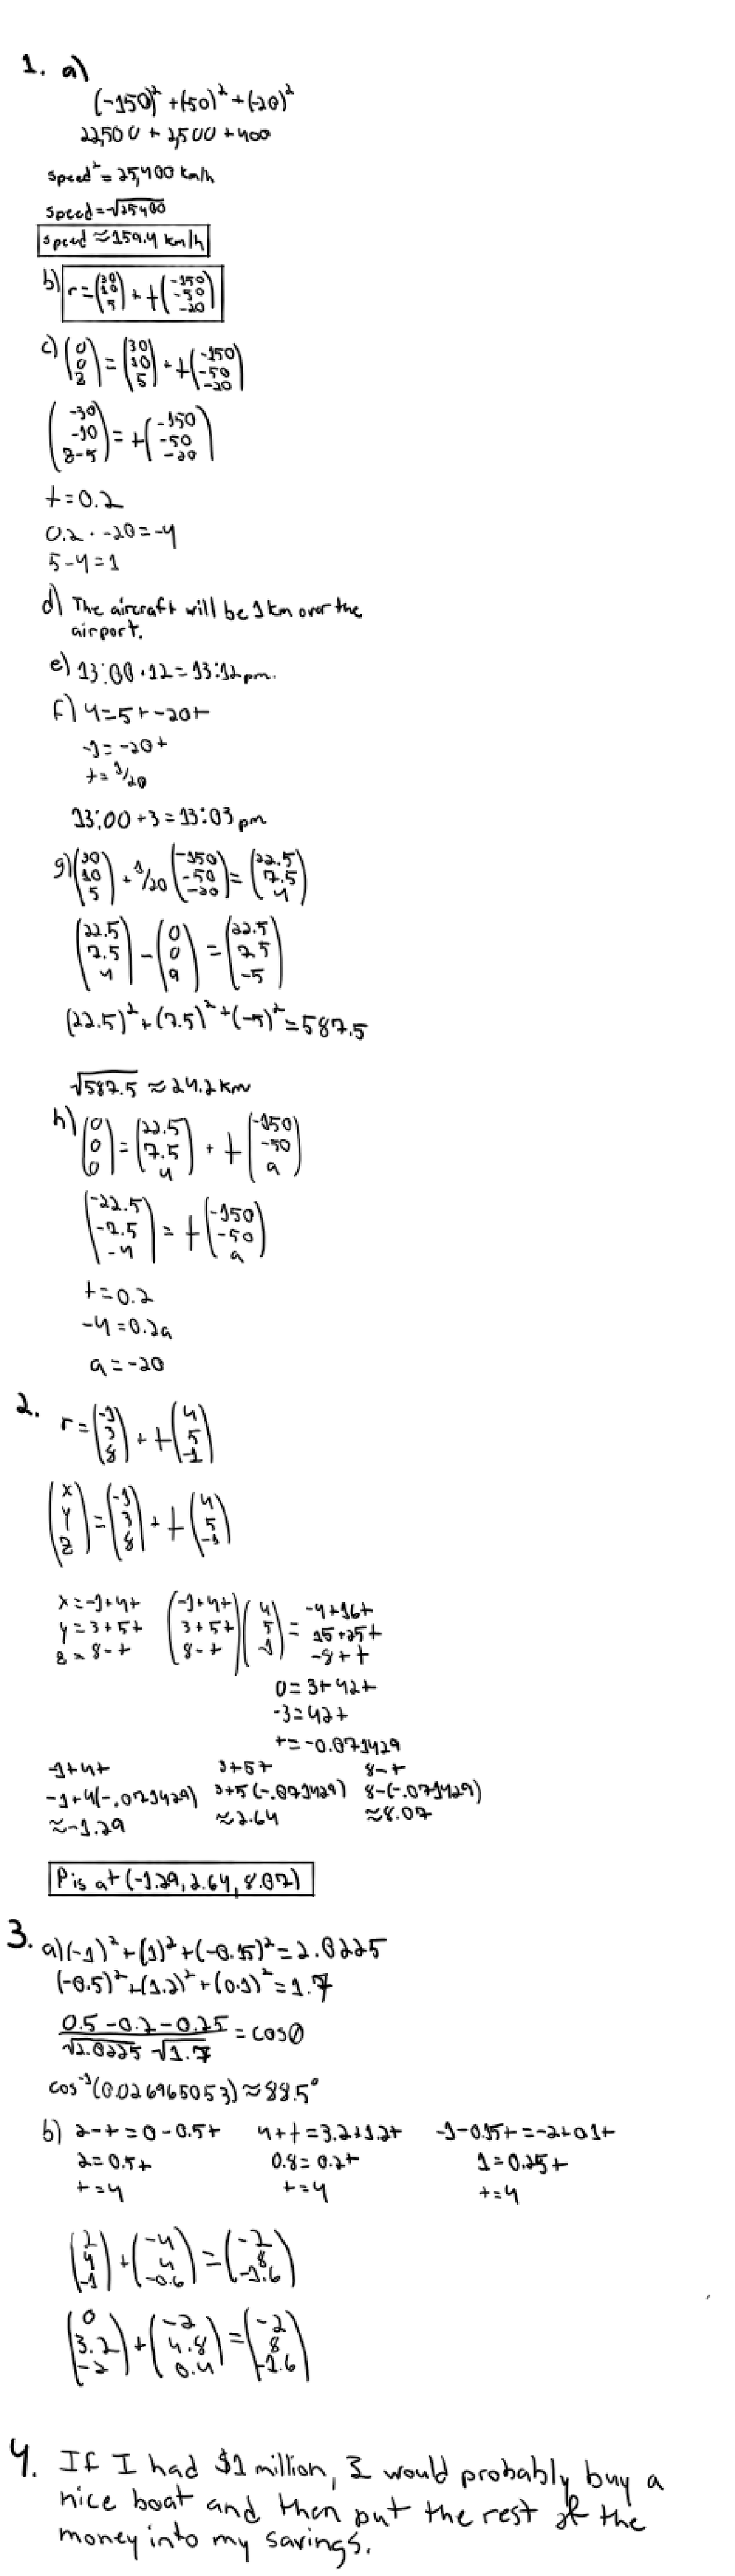 1. a)
(-150)² + (-50)² + (-20)²
22,500 + 2,500 + 400
speed² = 25,400 km/h
speed = √25400
speed ≈ 159.4 km/h
b) r = (30 10 5) + t(-150 -50 -20)
c) (0 0 z) = (30 10 5) + t(-150 -50 -20)
(-30 -10 z-5) = t(-150 -50 -20)
t = 0.2
0.2 · -20 = -4
5 - 4 = 1
d) The aircraft will be 1 km over the
airport.
e) 13:00 + 12 = 13:12 pm.
f) 4 = 5 + -20t
-1 = -20t
t = 1/20
13:00 + 3 = 13:03 pm
g) (30 10 5) + 1/20 (-150 -50 -20) = (22.5 7.5 4)
(22.5 7.5 4) - (0 0 9) = (22.5 7.5 -5)
(22.5)² + (7.5)² + (-5)² = 587.5
√587.5 ≈ 24.2 km
h) (0 0 0) = (22.5 7.5 4) + t(-150 -50 a)
(-22.5 -7.5 -4) = t(-150 -50 a)
t = 0.2
-4 = 0.2a
a = -20
2. r = (-1 3 8) + t(4 5 -1)
(x y z) = (-1 3 8) + t(4 5 -1)
x = -1 + 4t
y = 3 + 5t
z = 8 - t
(-1+4t 3+5t 8-t)(4 5 -1) = -4+16t 15+25t -8+t
0 = 3 + 42t
-3 = 42t
t = -0.071429
-1+4t 3+5t 8-t
-1+4(-.071429) 3+5(-.071429) 8-(-.071429)
≈-1.29 ≈2.64 ≈8.07
P is at (-1.29, 2.64, 8.07)
3. a) (-1)² + (1)² + (-0.15)² = 2.0225
(-0.5)² + (1.2)² + (0.1)² = 1.7
0.5 - 0.2 - 0.25 / √2.0225 √1.7 = cosθ
cos⁻¹(0.026965053) ≈ 88.5°
b) 2-t = 0-0.5t 4+t = 3.2+1.2t -1-0.15t = -2+0.1t
2 = 0.5t 0.8 = 0.2t 1 = 0.25t
t = 4 t = 4 t = 4
(2 4 -1) + (-4 4 -0.6) = (-2 8 -1.6)
(0 3.2 -2) + (-2 4.8 0.4) = (-2 8 -1.6)
4. If I had $1 million, I would probably buy a
nice boat and then put the rest of the
money into my savings.